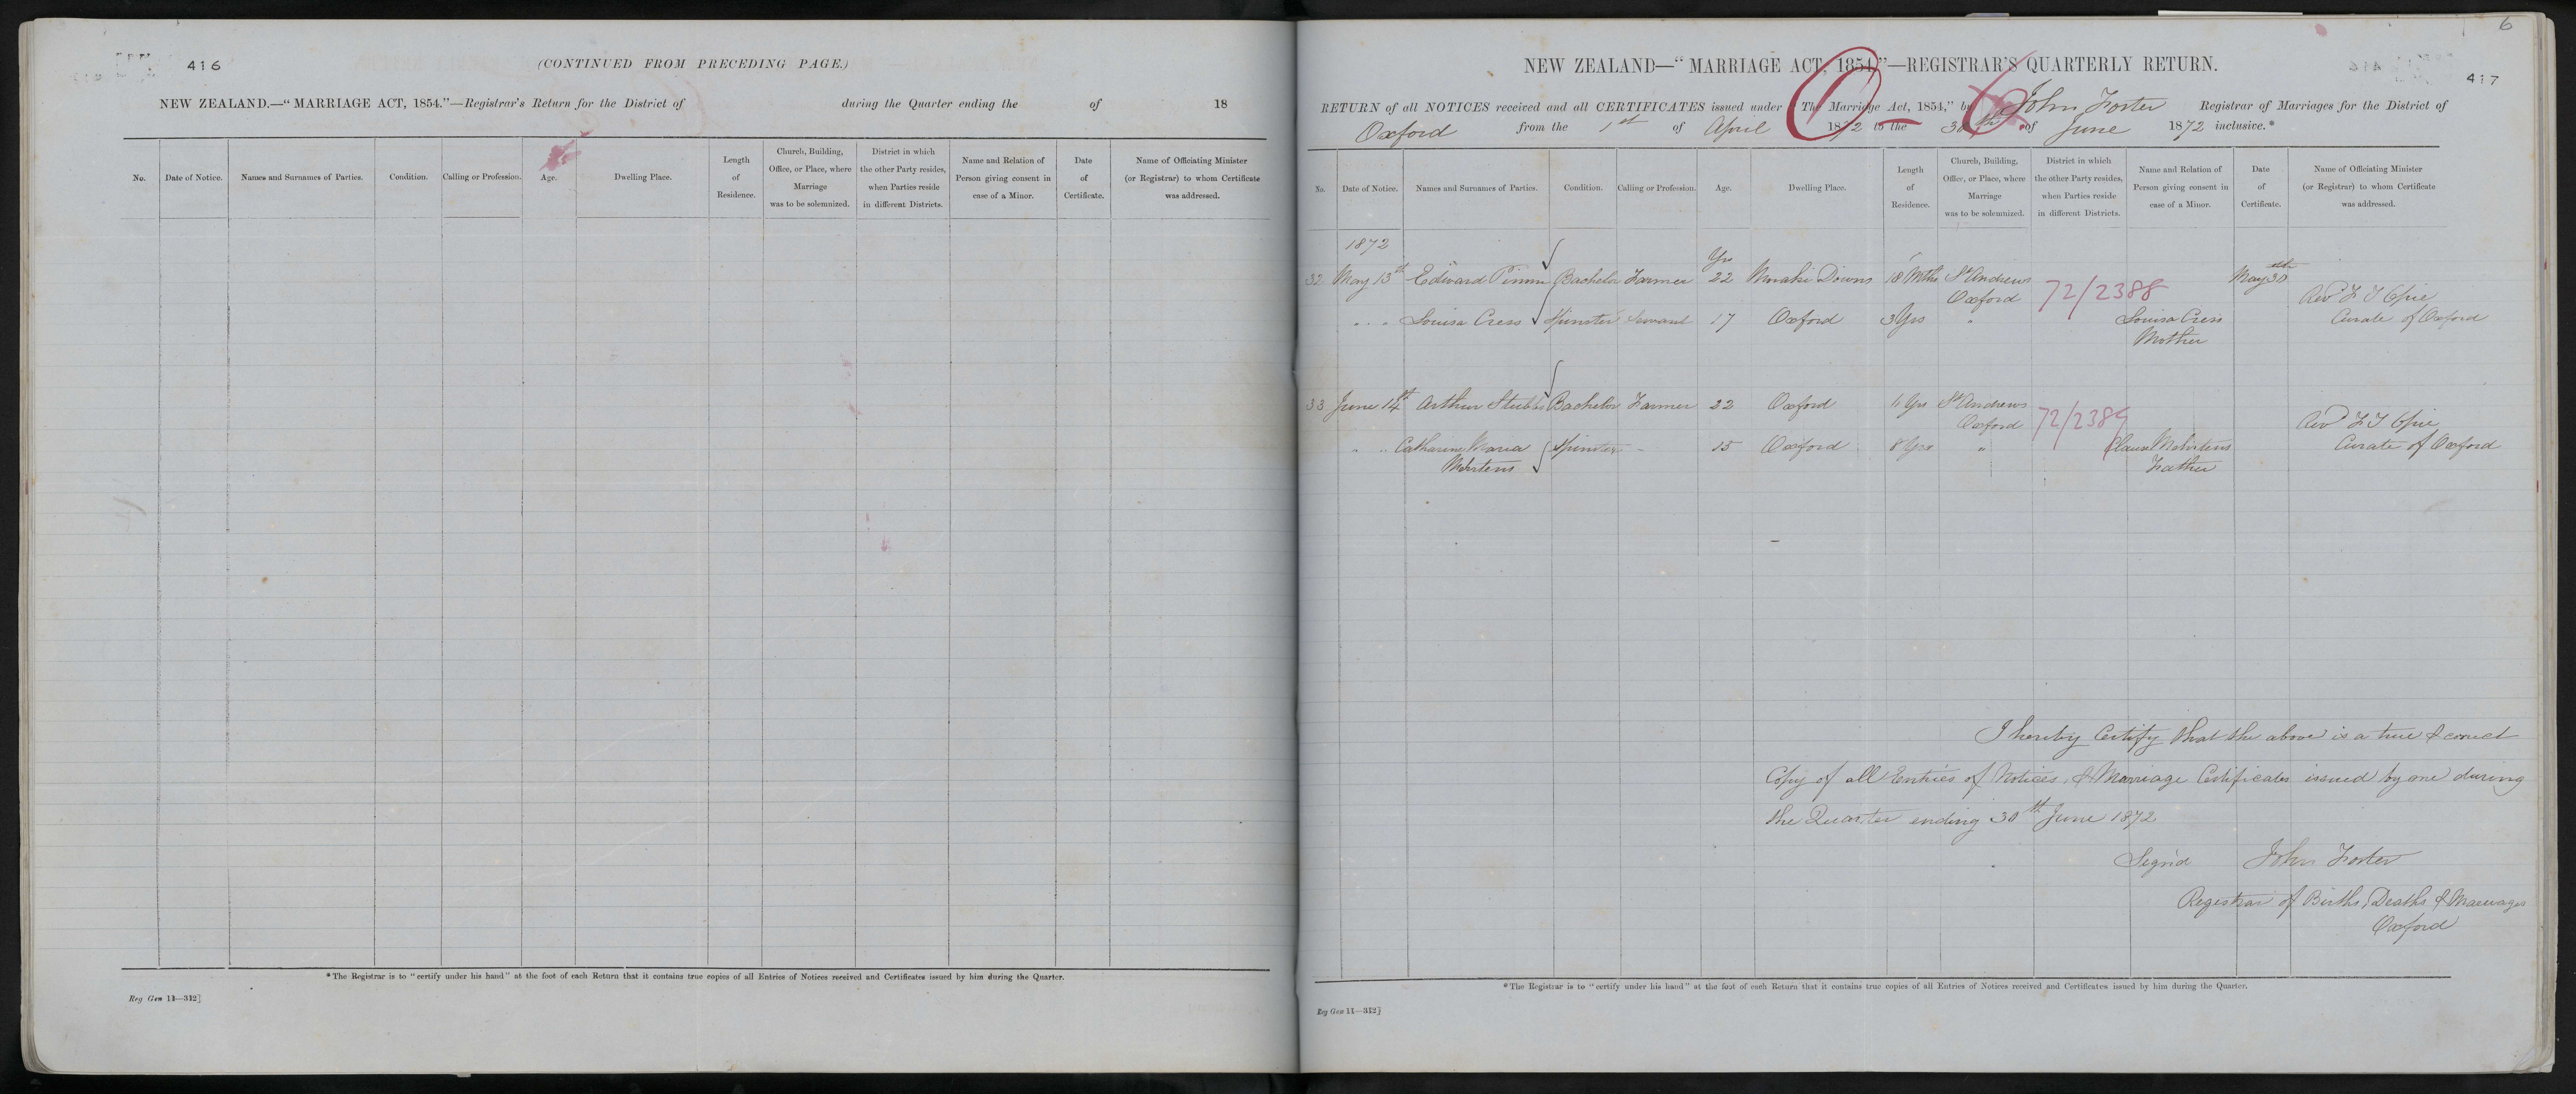 416
(CONTINUED FROM PRECEDING PAGE.)
NEW ZEALAND.—“MARRIAGE ACT, 1854.”—Registrar's Return for the District of during the Quarter ending the of 18
No.
Date of Notice.
Names and Surnames of Parties.
Condition.
Calling or Profession.
Age.
Dwelling Place.
Length
of
Residence.
Church, Building,
Office, or Place, where
Marriage
was to be solemnized.
District in which
the other Party resides,
when Parties reside
in different Districts.
Name and Relation of
Person giving consent in
case of a Minor.
Date
of
Certificate.
Name of Officiating Minister
(or Registrar) to whom Certificate
was addressed.
*The Registrar is to “certify under his hand” at the foot of each Return that it contains true copies of all Entries of Notices received and Certificates issued by him during the Quarter.
Reg Gen 11—312]
6
417
NEW ZEALAND—“MARRIAGE ACT, 1854,”—REGISTRAR'S QUARTERLY RETURN.
O-6.
RETURN of all NOTICES received and all CERTIFICATES issued under “The Marriage Act, 1854,” by John Foster Registrar of Marriages for the District of
Oxford from the 1st of April 1872 to the 30th of June 1872 inclusive.*
No.
Date of Notice.
Names and Surnames of Parties.
Condition.
Calling or Profession.
Age.
Dwelling Place.
Length
of
Residence.
Church, Building,
Office, or Place, where
Marriage
was to be solemnized.
District in which
the other Party resides,
when Parties reside
in different Districts.
Name and Relation of
Person giving consent in
case of a Minor.
Date
of
Certificate.
Name of Officiating Minister
(or Registrar) to whom Certificate
was addressed.
1872
Yrs
32 May 13th Edward Pimm Bachelor Farmer 22 Moraki Downs 18 Mths St Andrews May 30th
Oxford 72/2388 Revd F T Opie
" " Louisa Cress Spinster Servant 17 Oxford 3 Yrs " Louisa Cress Curate of Oxford
Mother
33 June 14th Arthur Stubbs Bachelor Farmer 22 Oxford Yrs St Andrews
Oxford 72/2389 Revd F T Opie
" " Catharine Maria Spinster - 15 Oxford 8 Yrs " Claus Mehrtens Curate of Oxford
Mehrtens Father
I hereby Certify that the above is a true & correct
Copy of all Entries of Notices, & Marriage Certificates issued by me during
the Quarter ending 30th June 1872
Sign'd John Foster
Registrar of Births, Deaths & Marriages
Oxford
*The Registrar is to “certify under his hand” at the foot of each Return that it contains true copies of all Entries of Notices received and Certificates issued by him during the Quarter.
Reg Gen 11—312]